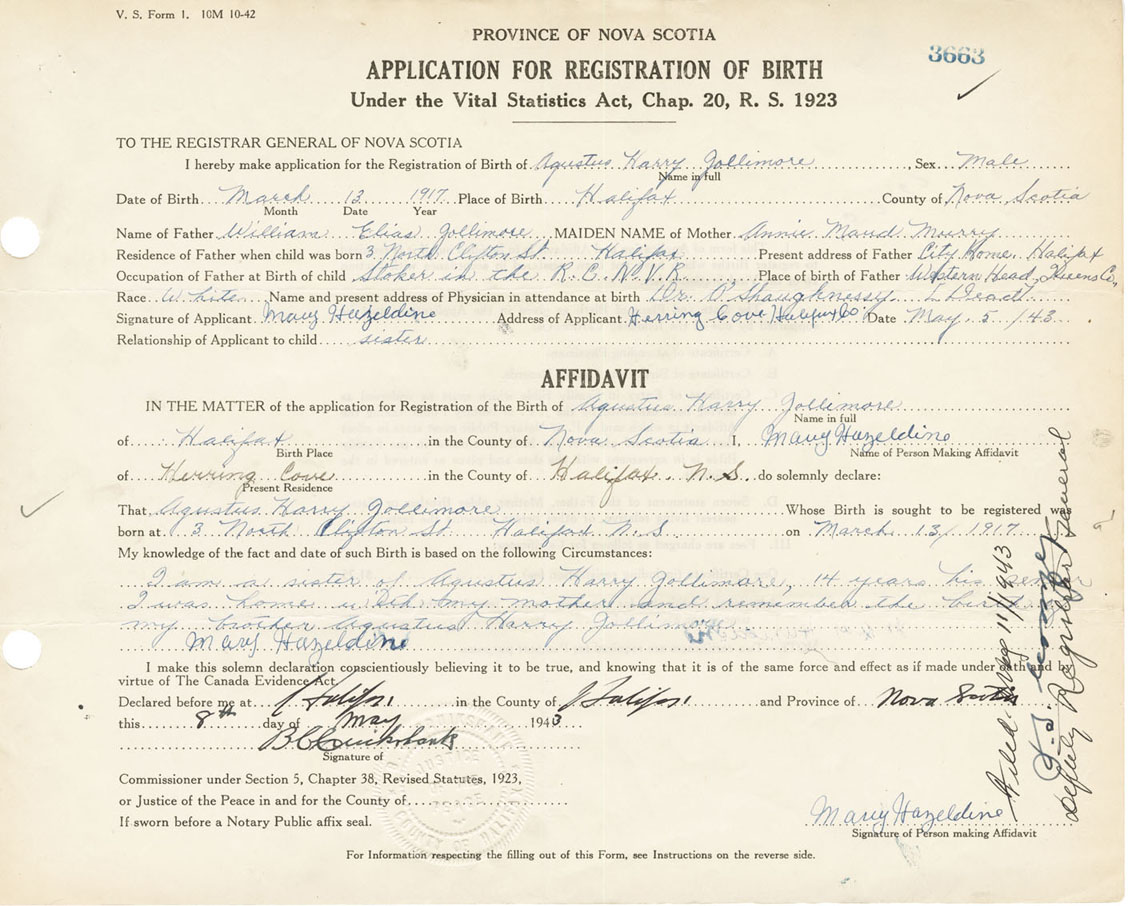 V. S. Form 1. 10M 10-42
PROVINCE OF NOVA SCOTIA
3663
APPLICATION FOR REGISTRATION OF BIRTH
Under the Vital Statistics Act, Chap. 20, R. S. 1923
TO THE REGISTRAR GENERAL OF NOVA SCOTIA
I hereby make application for the Registration of Birth of Agustus Harry Jollimore Sex Male
Name in full
Date of Birth March 13 1917 Place of Birth Halifax County of Nova Scotia
Month Date Year
Name of Father William Elias Jollimore MAIDEN NAME of Mother Annie Maud Murry
Residence of Father when child was born 3 North Clifton St. Halifax Present address of Father City Home, Halifax
Occupation of Father at Birth of child Stoker in the R.C.N.V.R. Place of birth of Father Western Head, Queens Co,
Race White Name and present address of Physician in attendance at birth Dr. O'Shaughnessy Dead
Signature of Applicant Mary Hazeldine Address of Applicant Herring Cove Halifax Co Date May 5 /43
Relationship of Applicant to child sister
AFFIDAVIT
IN THE MATTER of the application for Registration of the Birth of Agustus Harry Jollimore
Name in full
of Halifax in the County of Nova Scotia I, Mary Hazeldine
Birth Place Name of Person Making Affidavit
of Herring Cove in the County of Halifax, N.S. do solemnly declare:
Present Residence
That Agustus Harry Jollimore Whose Birth is sought to be registered was
born at 3 North Clifton St. Halifax N.S. on March 13/1917
My knowledge of the fact and date of such Birth is based on the following Circumstances:
I am a sister of Agustus Harry Jollimore, 14 years his senior
I was home with my mother and remember the birth
my brother Agustus Harry Jollimore
Mary Hazeldine
I make this solemn declaration conscientiously believing it to be true, and knowing that it is of the same force and effect as if made under oath and by
virtue of The Canada Evidence Act.
Declared before me at Halifax in the County of Halifax and Province of Nova Scotia
this 8th day of May 1943
Signature of
Commissioner under Section 5, Chapter 38, Revised Statutes, 1923,
or Justice of the Peace in and for the County of
If sworn before a Notary Public affix seal.
Mary Hazeldine
Signature of Person making Affidavit
For Information respecting the filling out of this Form, see Instructions on the reverse side.
Filed 11/1943
Deputy Registrar General